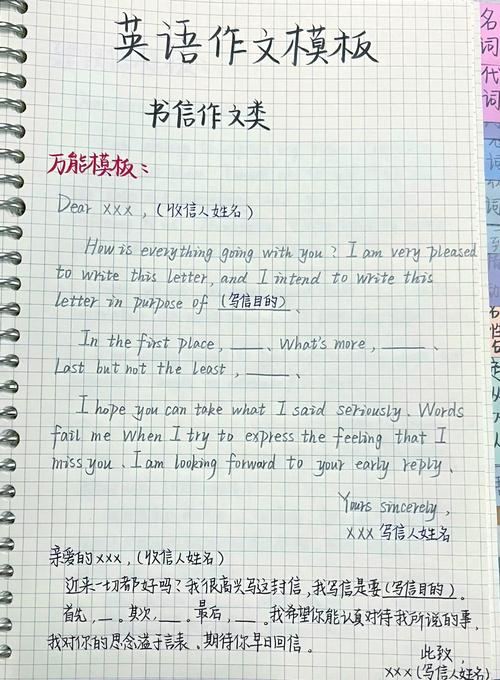 英语作文模板
书信作文类
万能模板：
Dear xxx，(收信人姓名)
How is everything going with you? I am very pleased
to write this letter, and I intend to write this
letter in purpose of (写信目的)、
In the first place, ____、What's more, ____、
Last but not the least, ____、
I hope you can take what I said seriously、Words
fail me when I try to express the feeling that I
miss you、I am looking forward to your early reply、
Yours sincerely,
xxx 写信人姓名
亲爱的xxx，(收信人姓名)
近来一切都好吗？我很高兴写这封信，我写信是要(写信目的)。
首先，__。其次，__。最后，__。我希望你能认真对待我所说的事，
我对你的思念溢于言表、期待你早日回信。
此致，
xxx(写信人姓名)
名词
代词